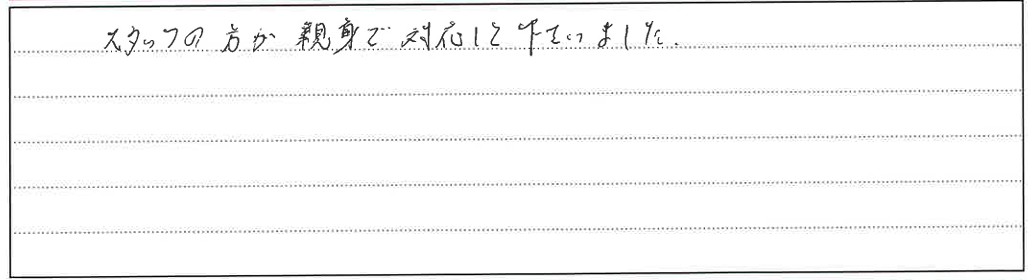 スタッフの方が親身で対応して下さいました.